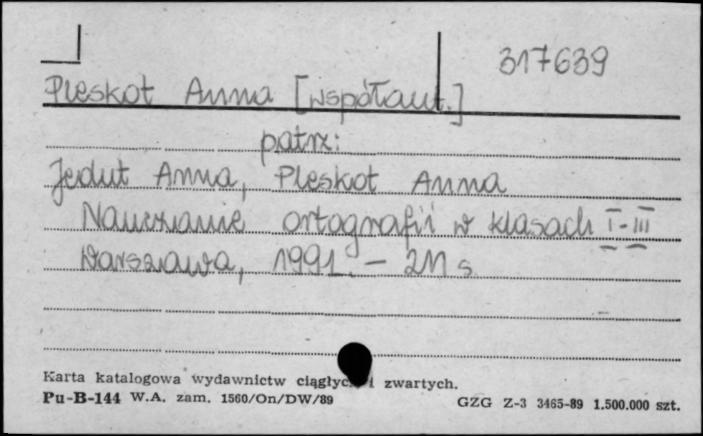 317639
Pleskot Anna [współaut.]
patrz:
Jedut Anna, Pleskot Anna
Nauczanie ortografii w klasach I-III
Warszawa, 1991. - 211 s
Karta katalogowa wydawnictw ciągłych i zwartych.
Pu-B-144 W.A. zam. 1560/On/DW/89 GZG Z-3 3465-89 1.500.000 szt.